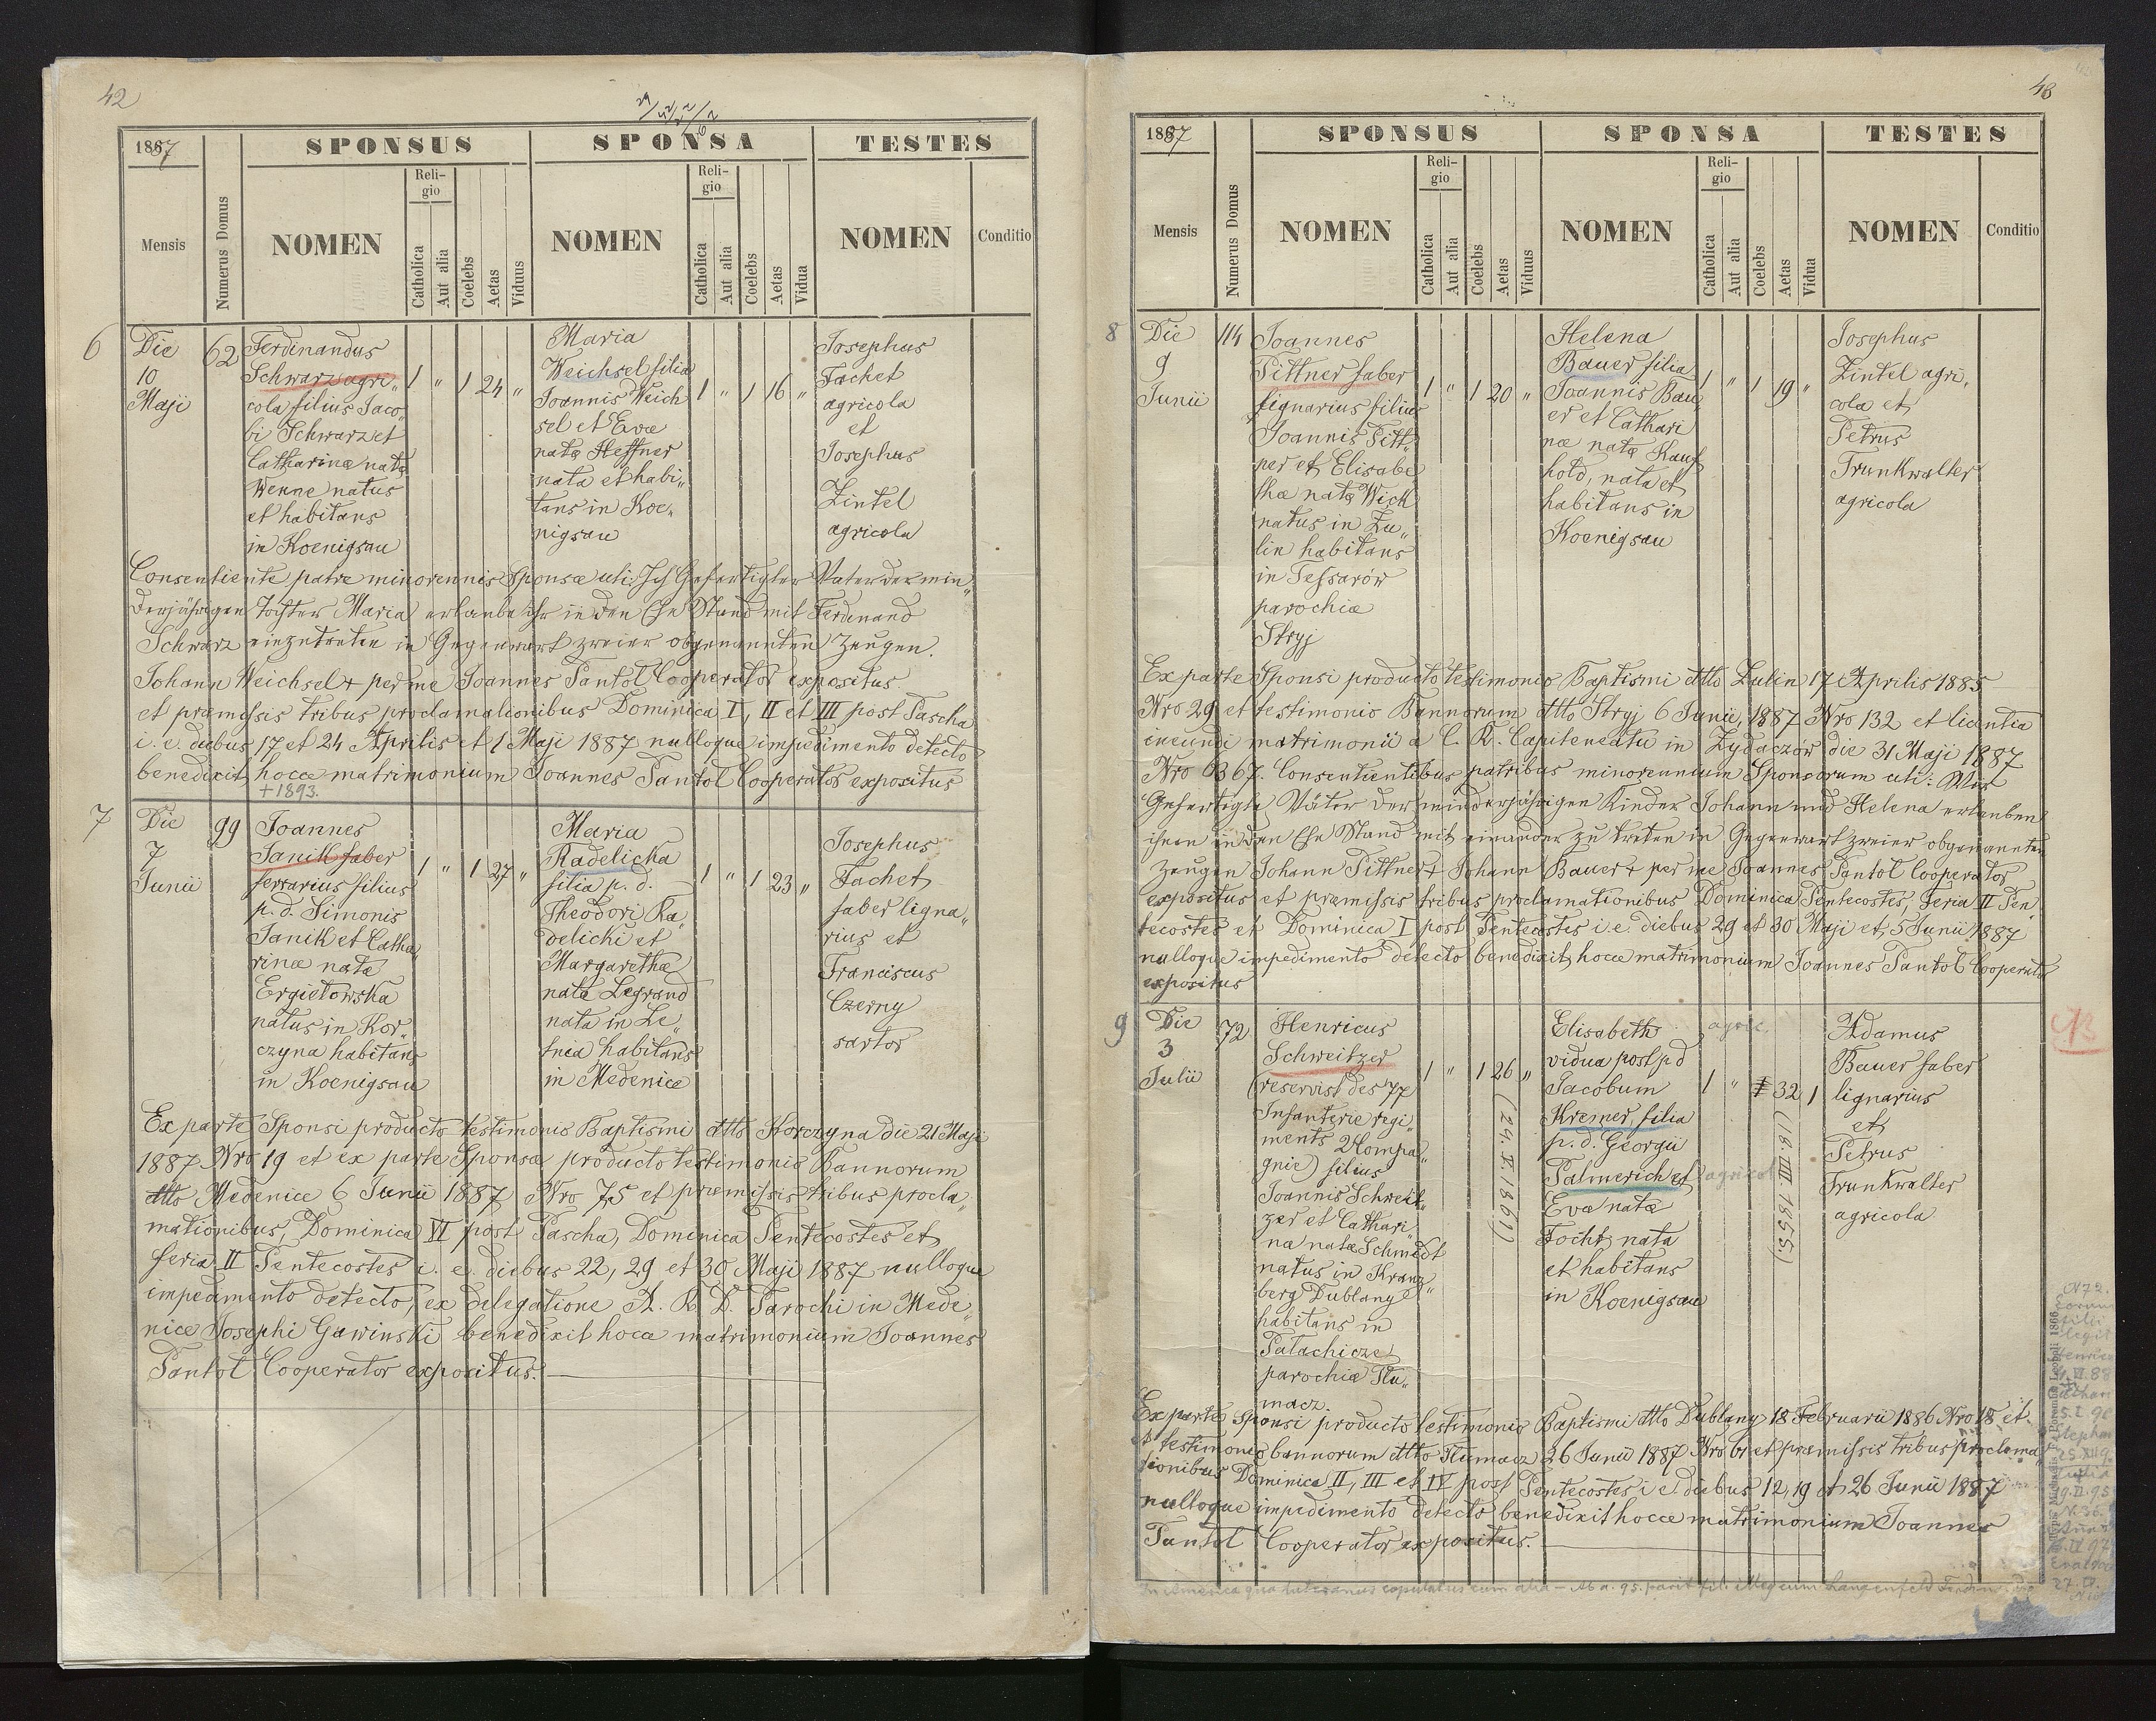 42
1887
SPONSUS
SPONSA
TESTES
Mensis
Numerus Domus
NOMEN
Religio
Catholica
Aut alia
Coelebs
Aetas
Viduus
NOMEN
Religio
Catholica
Aut alia
Coelebs
Aetas
Vidua
NOMEN
Conditio
6
Die
10
Maji
62
Ferdinandus
Schwarz agri„
cola filius Jaco„
bi Schwarz et
Catharinæ natæ
Wenne natus
et habitans
in Koenigsau
1 „ 1 24 „
Maria
Weichsel filia
Joannis Weich
sel et Evæ
natæ Heffner
nata et habi„
tans in Koe„
nigsau
1 „ 1 16 „
Josephus
Tachet
agricola
et
Josephus
Zintel
agricola
Consentiente patre minorennis Sponsæ uti: Ich Gefertigter Vater der min„
derjährigen Tochter Maria erlaube ihr in den Ehe Stand mit Ferdinand
Schwarz einzutreten in Gegenwart zweier obgenannten Zeugen.
Johann Weichsel + per me Joannes Pantol Cooperator expositus
et præmissis tribus proclamationibus Dominica I, II et III post Pascha
i. e. diebus 17 et 24 Aprilis et 1 Maji 1887 nulloque impedimento detecto
benedixit hocce matrimonium Joannes Pantol Cooperator expositus
+ 1893.
7
Die
7
Junii
99
Joannes
Janik faber
ferrarius filius
p. d. Simonis
Janik et Catha„
rinæ natæ
Ergietowska
natus in Kor„
czyna habitans
in Koenigsau
1 „ 1 27 „
Maria
Radelicka
filia p. d.
Theodori Ra„
delicki et
Margarethæ
natæ Legrand
nata in Le„
tnia habitans
in Medenice
1 „ 1 23 „
Josephus
Tachet
faber ligna„
rius et
Franciscus
Czerny
sartor
Ex parte Sponsi producto testimonio Baptismi dtto Korczyna die 21 Maji
1887 Nro 19 et ex parte Sponsæ producto testimonio Bannorum
dtto Medenice 6 Junii 1887 Nro 75 et præmissis tribus procla„
mationibus, Dominica VI post Pascha, Dominica Pentecostes et
feria II Pentecostes i. e. diebus 22, 29 et 30 Maji 1887 nulloque
impedimento detecto, ex delegatione A. R. D. Parochi in Mede„
nice Josephi Gawinski benedixit hocce matrimonium Joannes
Pantol Cooperator expositus.
48
1887
SPONSUS
SPONSA
TESTES
Mensis
Numerus Domus
NOMEN
Religio
Catholica
Aut alia
Coelebs
Aetas
Viduus
NOMEN
Religio
Catholica
Aut alia
Coelebs
Aetas
Vidua
NOMEN
Conditio
8
Die
9
Junii
114
Joannes
Pittner faber
lignarius filius
Joannis Pitt„
ner et Elisabe
thæ natæ Wick
natus in Zu„
lin habitans
in Tessarów
parochiæ
Stryj
1 „ 1 20 „
Helena
Bauer filia
Joannis Bau„
er et Cathari
næ natæ Kauf
hold, nata et
habitans in
Koenigsau
1 „ 1 19 „
Josephus
Zintel agri„
cola et
Petrus
Trunkwalter
agricola
Ex parte Sponsi producto testimonio Baptismi dtto Zulin 17 Aprilis 1885
Nro 29 et testimonio Bannorum dtto Stryj 6 Junii, 1887 Nro 132 et licentia
ineundi matrimonii a C. R. Capiteneatu in Zydaczów die 31 Maji 1887
Nro 6367. Consentientibus patribus minorennium Sponsorum uti: Wir
Gefertigte Väter der minderjährigen Kinder Johann und Helena erlauben
ihnen in den Ehe Stand mit einander zu treten in Gegenwart zweier obgenannten
Zeugen Johann Pittner + Johann Bauer + per me Joannes Pantol Cooperator
expositus et præmissis tribus proclamationibus Dominica Pentecostes, Feria II Pen„
tecostes et Dominica I post Pentecostes i. e. diebus 29 et 30 Maji et 5 Junii 1887
nulloque impedimento detecto benedixit hocce matrimonium Joannes Pantol Cooperator
expositus
9
Die
3
Julii
72
Henricus
Schweitzer
(reservist des 77
Infanterie regi„
ments 2 Kompa„
gnie) filius
Joannis Schweit„
zer et Cathari„
næ natæ Schmidt
natus in Kranz„
berg Dublany
habitans in
Palachicze
parochiæ Tłu„
macz.
1 „ 1 26 „
(24. X. 1861)
Elisabeth
vidua post p d
Jacobum
Kremer, filia
p. d. Georgii
Palmerich et
Evæ natæ
Tocht, nata
et habitans
in Koenigsau
agric.
agricol
1 „ 32 1
(18. III 1855)
Adamus
Bauer faber
lignarius
et
Petrus
Trunkwalter
agricola
Ex parte Sponsi producto testimonio Baptismi dtto Dublany 18 Februarii 1886 Nro 18 et
et testimonio bannorum dtto Tłumacz 26 Junii 1887 Nro 61 et præmissis tribus proclama„
tionibus Dominica II, III et IV post Pentecostes i e. diebus 12, 19 et 26 Junii 1887
nulloque impedimento detecto benedixit hocce matrimonium Joannes
Pantol Cooperator expositus.
In America qua luteranus copulatus cum alia – Ab a. 95. parit fil. illeg cum Langenfeld
N 72.